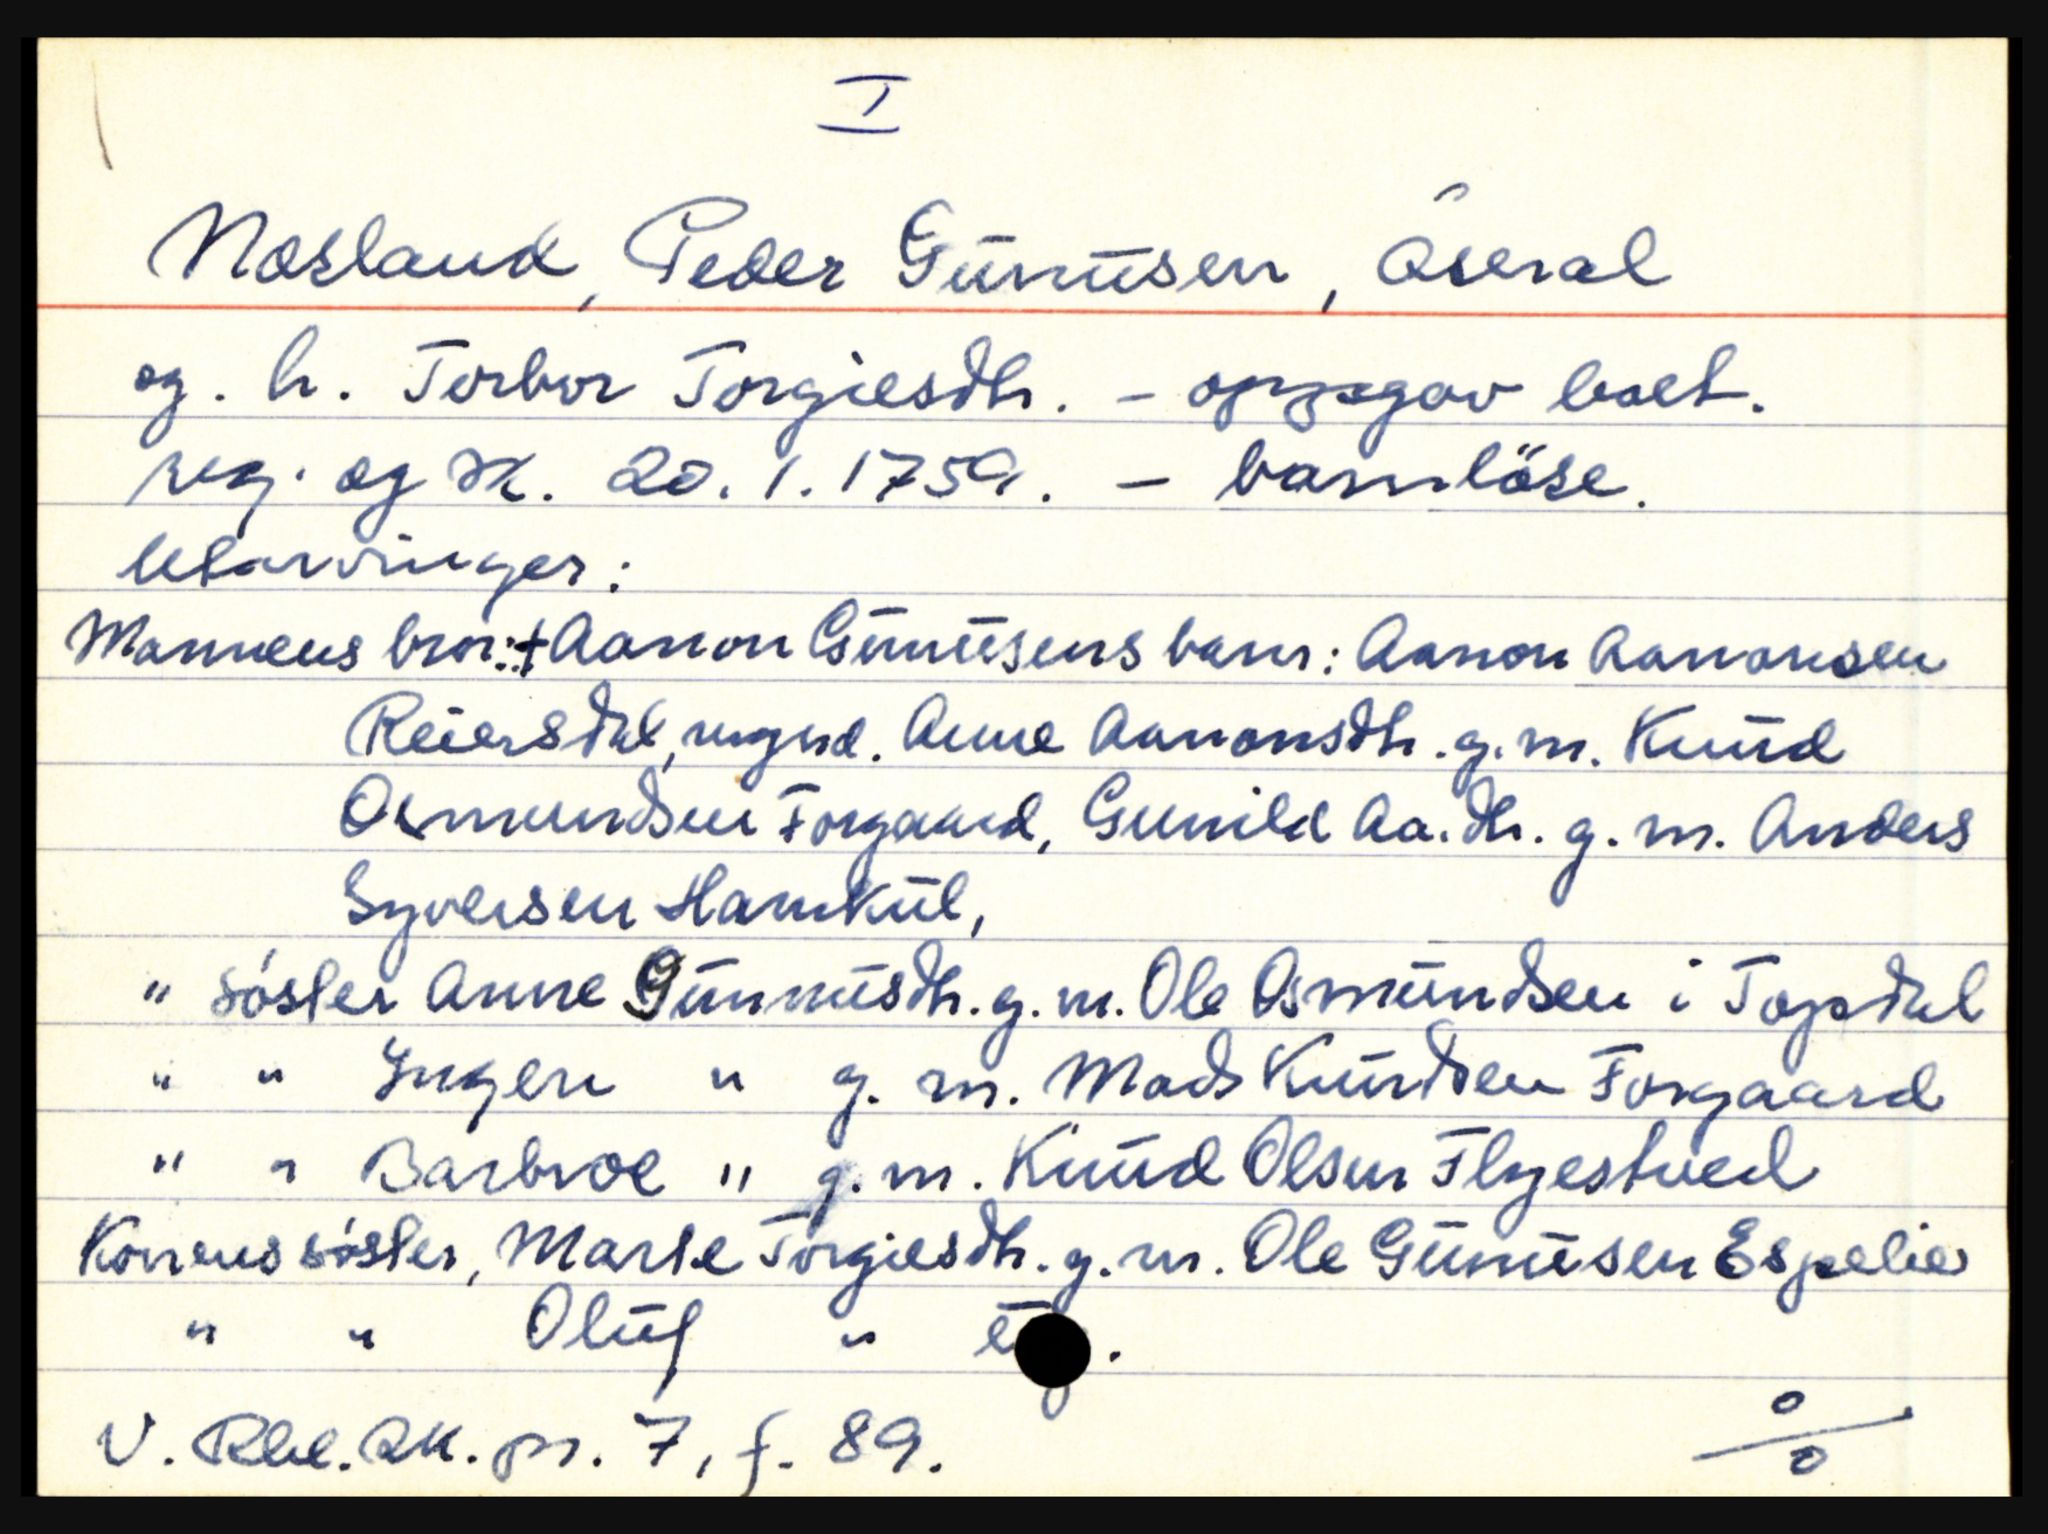 I
Næsland, Peder Gunnusen, Åseral
og. h. Torbor Torgiesdtr. - oppgav boet.
reg. og sk. 20.1.1759. - barnløse.
Utarvinger:
Mannens bror: † Aanon Gunnusens barn: Aanon Aanonsen
Reiersdal, mynd. Anne Aanonsdtr. g.m. Knud
Osmundsen Forgaard, Gunild Aa.dtr. g.m. Anders
Syversen Hamkul,
" søster Anne Gunnusdtr. g.m. Ole Osmundsen i Topdal
" " Ingen " g.m. Mads Knudsen Forgaard
" " Barbroe " g.m. Knud Olsen Flyestved
Konens søster, Marte Torgiesdtr. g.m. Ole Gunnusen Espelie
" " Oluf "
V. Rbl. sk. pr. 7, f. 89.
o/o